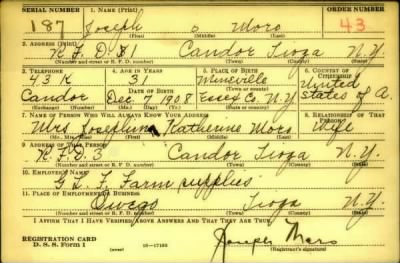 SERIAL NUMBER 1. NAME (Print) ORDER NUMBER
187 Joseph S Moro 43
(First) (Middle) (Last)
2. ADDRESS (Print)
R.F.D #1 Candor Tioga N.Y.
(Number and street or R. F. D. number) (Town) (County) (State)
3. TELEPHONE 4. AGE IN YEARS 5. PLACE OF BIRTH 6. COUNTRY OF CITIZENSHIP
43 K 31 Mineville United
(Town or county)
Candor DATE OF BIRTH States of A
Dec 7 1908 Essex Co N.Y.
(Exchange) (Number) (Mo.) (Day) (Yr.) (State or country)
7. NAME OF PERSON WHO WILL ALWAYS KNOW YOUR ADDRESS 8. RELATIONSHIP OF THAT PERSON
Mrs Josephine Katherine Moro Wife
(Mr., Mrs., Miss) (First) (Middle) (Last)
9. ADDRESS OF THAT PERSON
R.F.D. 3 Candor Tioga N.Y.
(Number and street or R. F. D. number) (Town) (County) (State)
10. EMPLOYER'S NAME
G. L. F. Farm supplies
11. PLACE OF EMPLOYMENT OR BUSINESS
Owego Tioga N.Y.
(Number and street or R. F. D. number) (Town) (County) (State)
I AFFIRM THAT I HAVE VERIFIED ABOVE ANSWERS AND THAT THEY ARE TRUE.
REGISTRATION CARD
D. S. S. Form 1 Joseph Moro
(Registrant's signature)